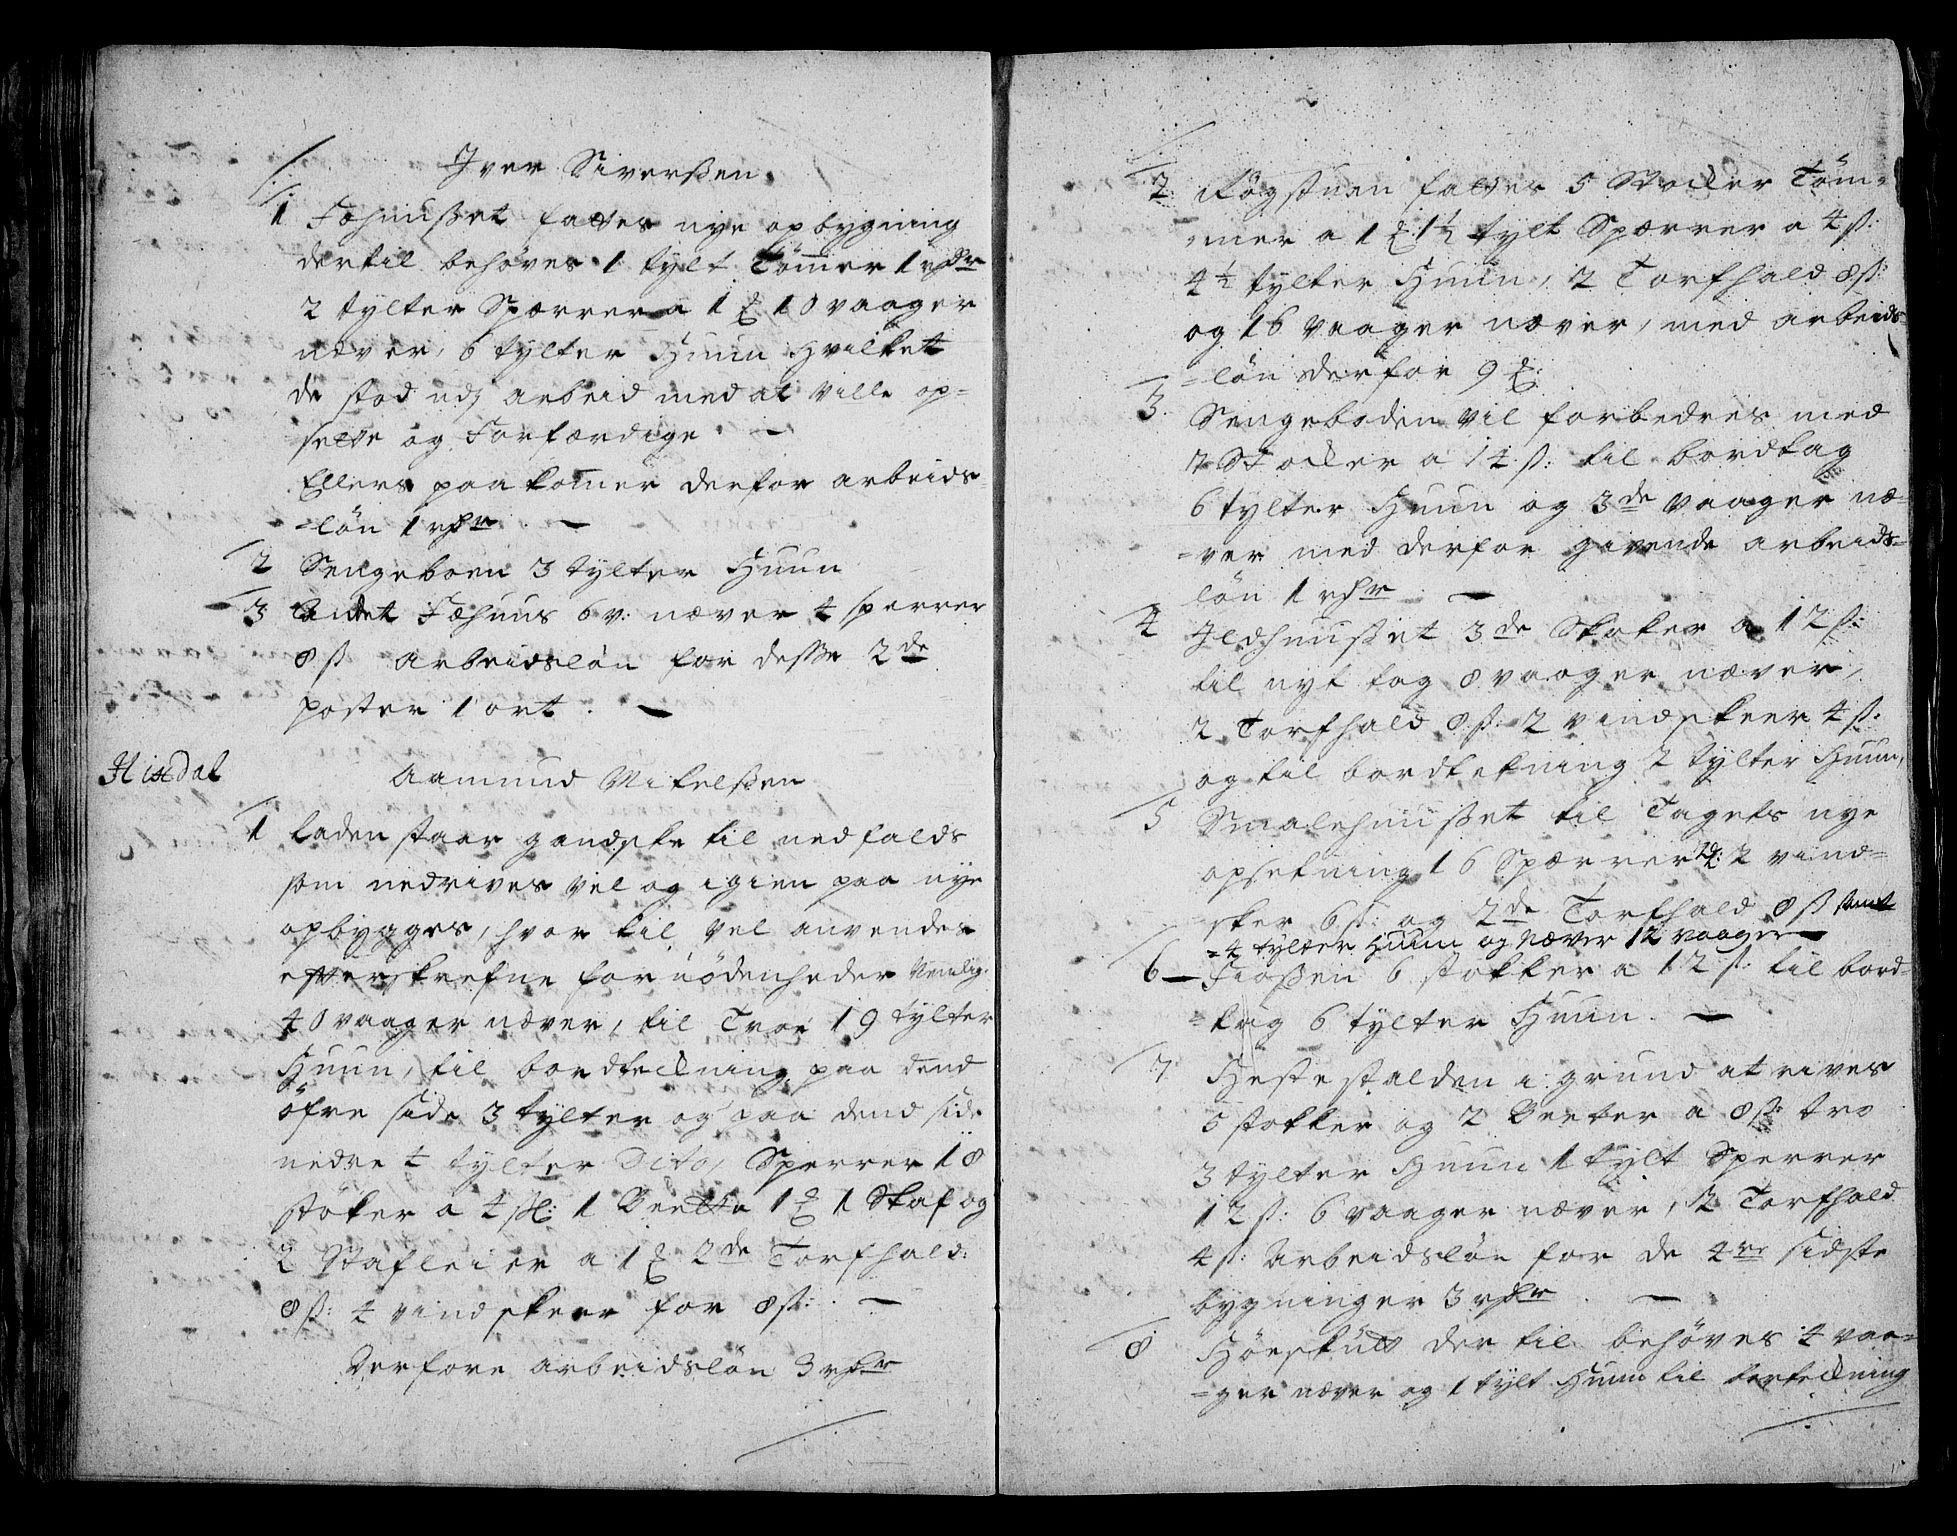 Iver Siverßen
1 Føhuußet fattes nye opbygning
dertil behøves 1 tylt Tømer 1 rhdr
2 tylter Spærrer a 1 ℔ 10 vaager
næver, 6 tylter Huun hvilket
de stod udj arbeid med at ville op=
sette og Forfærdige. —
Ellers paakomer derfor arbeids=
=løn 1 rhdr —
2 Sengeboen 3 tylter Huun
3 Fæhuus 6 v: næver 4 sperrer
8 ß Arbeidsløn for deße 2de
poster 1 ort. —
Hisdal
Aamund Mikelßen
1 Laden staar gandske til nedfalds
som nedrives vel og igien paa nye
opbygges, hvor til vel anvendes
efterskrefne fornødenheder Nemlig.
40 vaager næver, til Troe 19 tylter
Huun, til bordteckning paa dend
öfre side 3 tylter og paa dend side
nedre 4 tylter Dito, Sperrer 18
støker a 4 ßl: 1 Beette 1 ℔ 1 Skaf og
2 Stafleier a 1 ℔ 2de Torfhald:
8 ß: 4 vindskeer for 8 ß: —
Derfore arbeidsløn 3 rhdr
2 Røgstuen fattes 5 Stocker Töm=
=mer a 1 ℔ 1½ tylt Spærrer a 4 ß:
4½ tylter Huun, 2 Torfhald 8 ß:
og 16 vaager næver, med arbeids=
=løn derfor 9 ℔:
3. Sengeboden vil forbedres med
7 Stocker a 14 ß: til bordtag
6 tylter Huun og 3de vaager næ=
=ver med derfor givende arbeids=
løn 1 rhdr —
4 Ildhuußet 3de Stoker a 12 ß:
til nyt tag 8 vaager næver,
2 Torfhald 8 ß: 2 vindskeer 4 ß:
og til bordtekning 2 tylter Huun,
5 Smalehuußet til Tagets nye
opsetning 16 Spærrer 2 ℔: 2 vind=
sker 6 ß: og 2de Torfhald 8 ß samt
=4 tylter Huun og Næver 12 vaager —
6 — Fioßen 6 stokker a 12 ß: til bord=
=tag 6 tylter Huun. —
7 Hestestalden i grund at rives
5 stokker og 2 Beeter a 8 ß: tro
3 tylter Huun 1 tylt Sperrer
12 ß: 6 vaager næver, 2 Torfhald
4 ß: Arbeidsløn for de 4re sidste
bygninger 3 rhdr. —
8 Høeskuit der til behøves 4 vaa=
=ger næver og 1 tylt Huun til torteckning